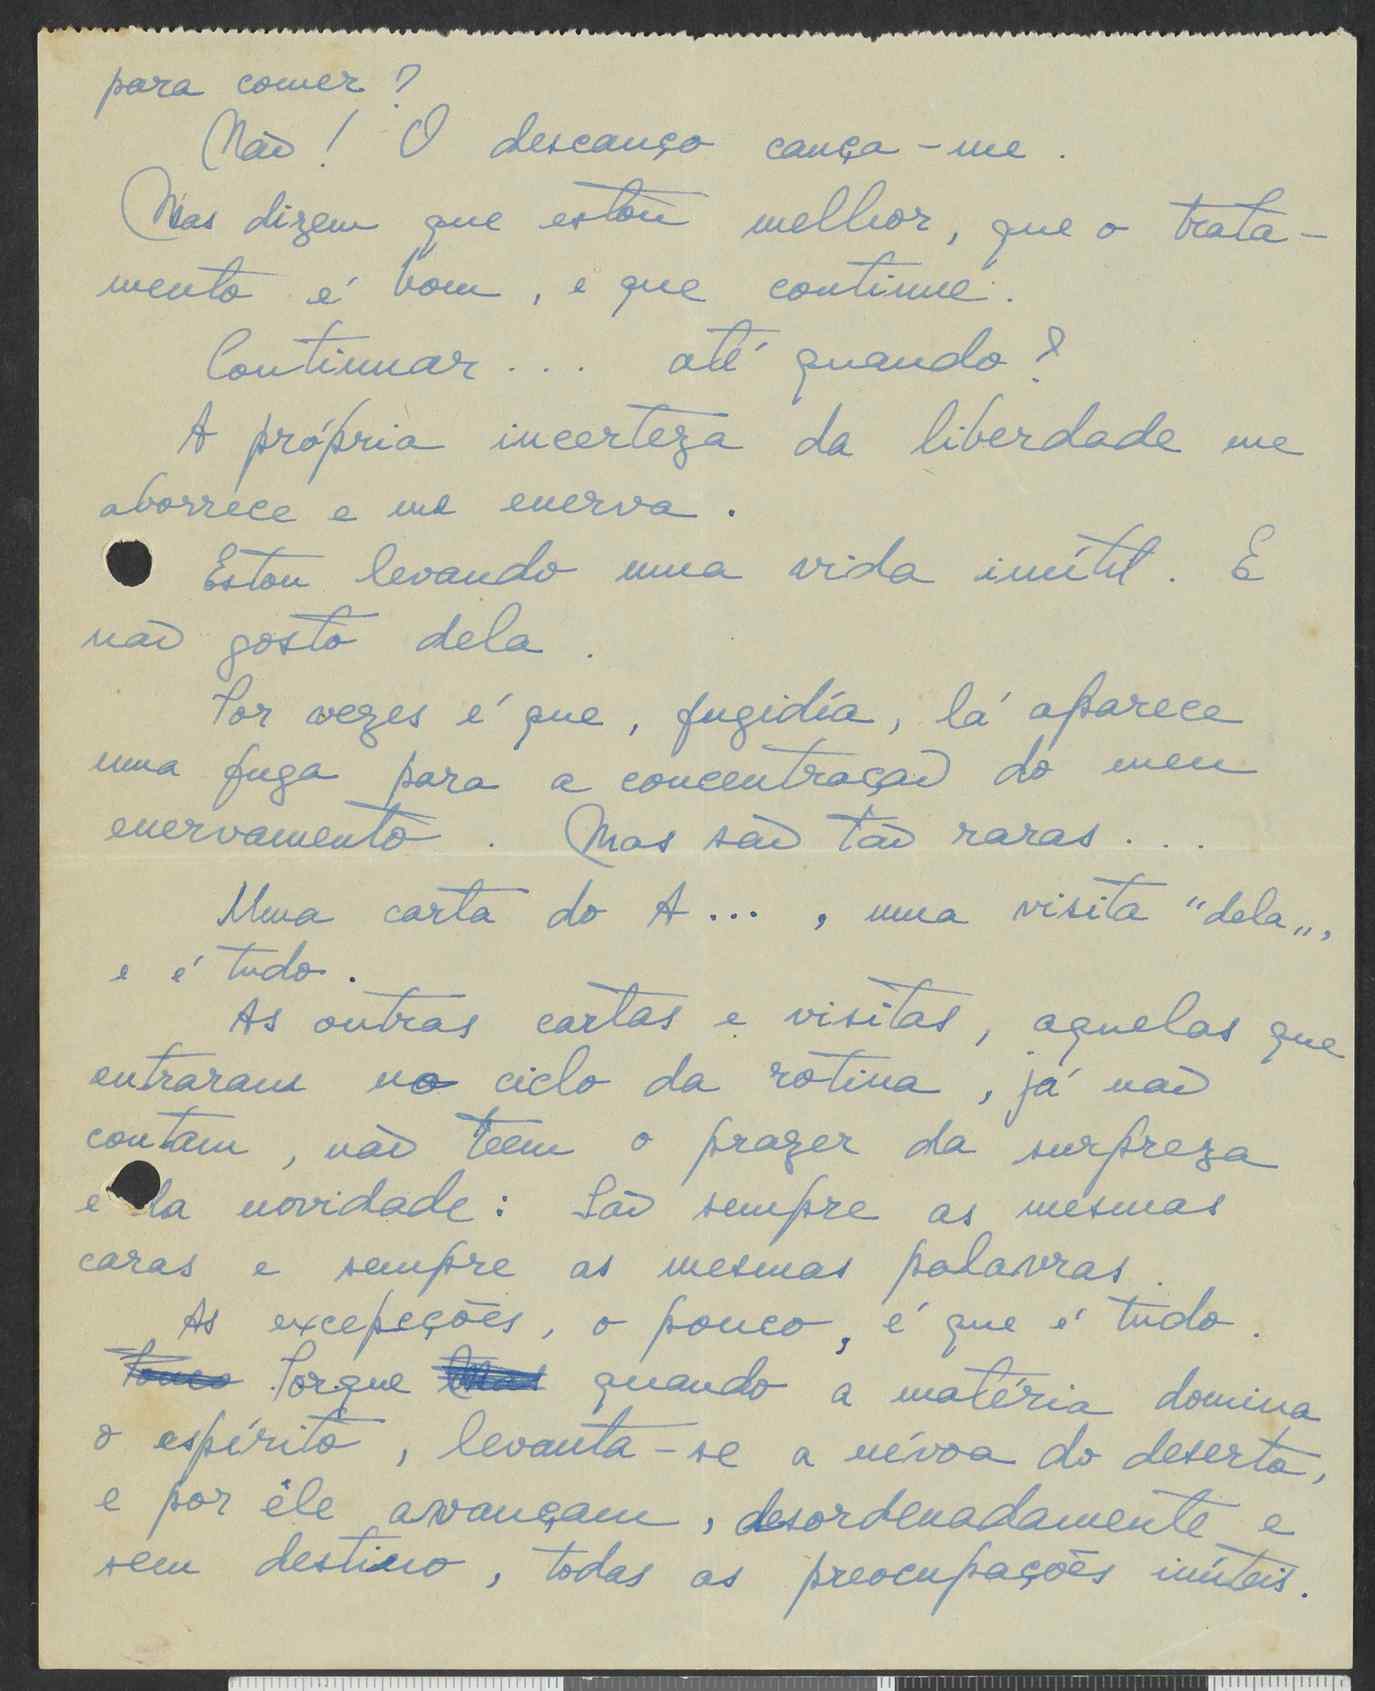 para comer?
Não! O descanço cança-me.
Mas dizem que estou melhor, que o trata-
mento é bom, e que continue.
Continuar... até quando?
A própria incerteza da liberdade me
aborrece e me enerva.
Estou levando uma vida inútil. E
não gosto dela.
Por vezes é que, fugidía, lá aparece
uma fuga para a concentração do meu
enervamento. Mas são tão raras...
Uma carta do A..., uma visita "dela",
e é tudo.
As outras cartas e visitas, aquelas que
entraram no ciclo da rotina, já não
contam, não teem o prazer da surpreza
e da novidade: São sempre as mesmas
caras e sempre as mesmas palavras.
As excepções, o pouco, é que é tudo.
Porque quando a matéria domina
o espírito, levanta-se a névoa do deserto,
e por êle avançam, desordenadamente e
sem destino, todas as preocupações inúteis.